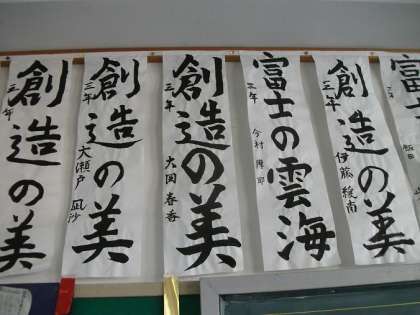 創造の美
三年
創造の美
三年 大瀬戸 凪沙
創造の美
三年 大国 春香
富士の雲海
三年 今村
創造の美
三年 伊藤 綾南
富士
三年